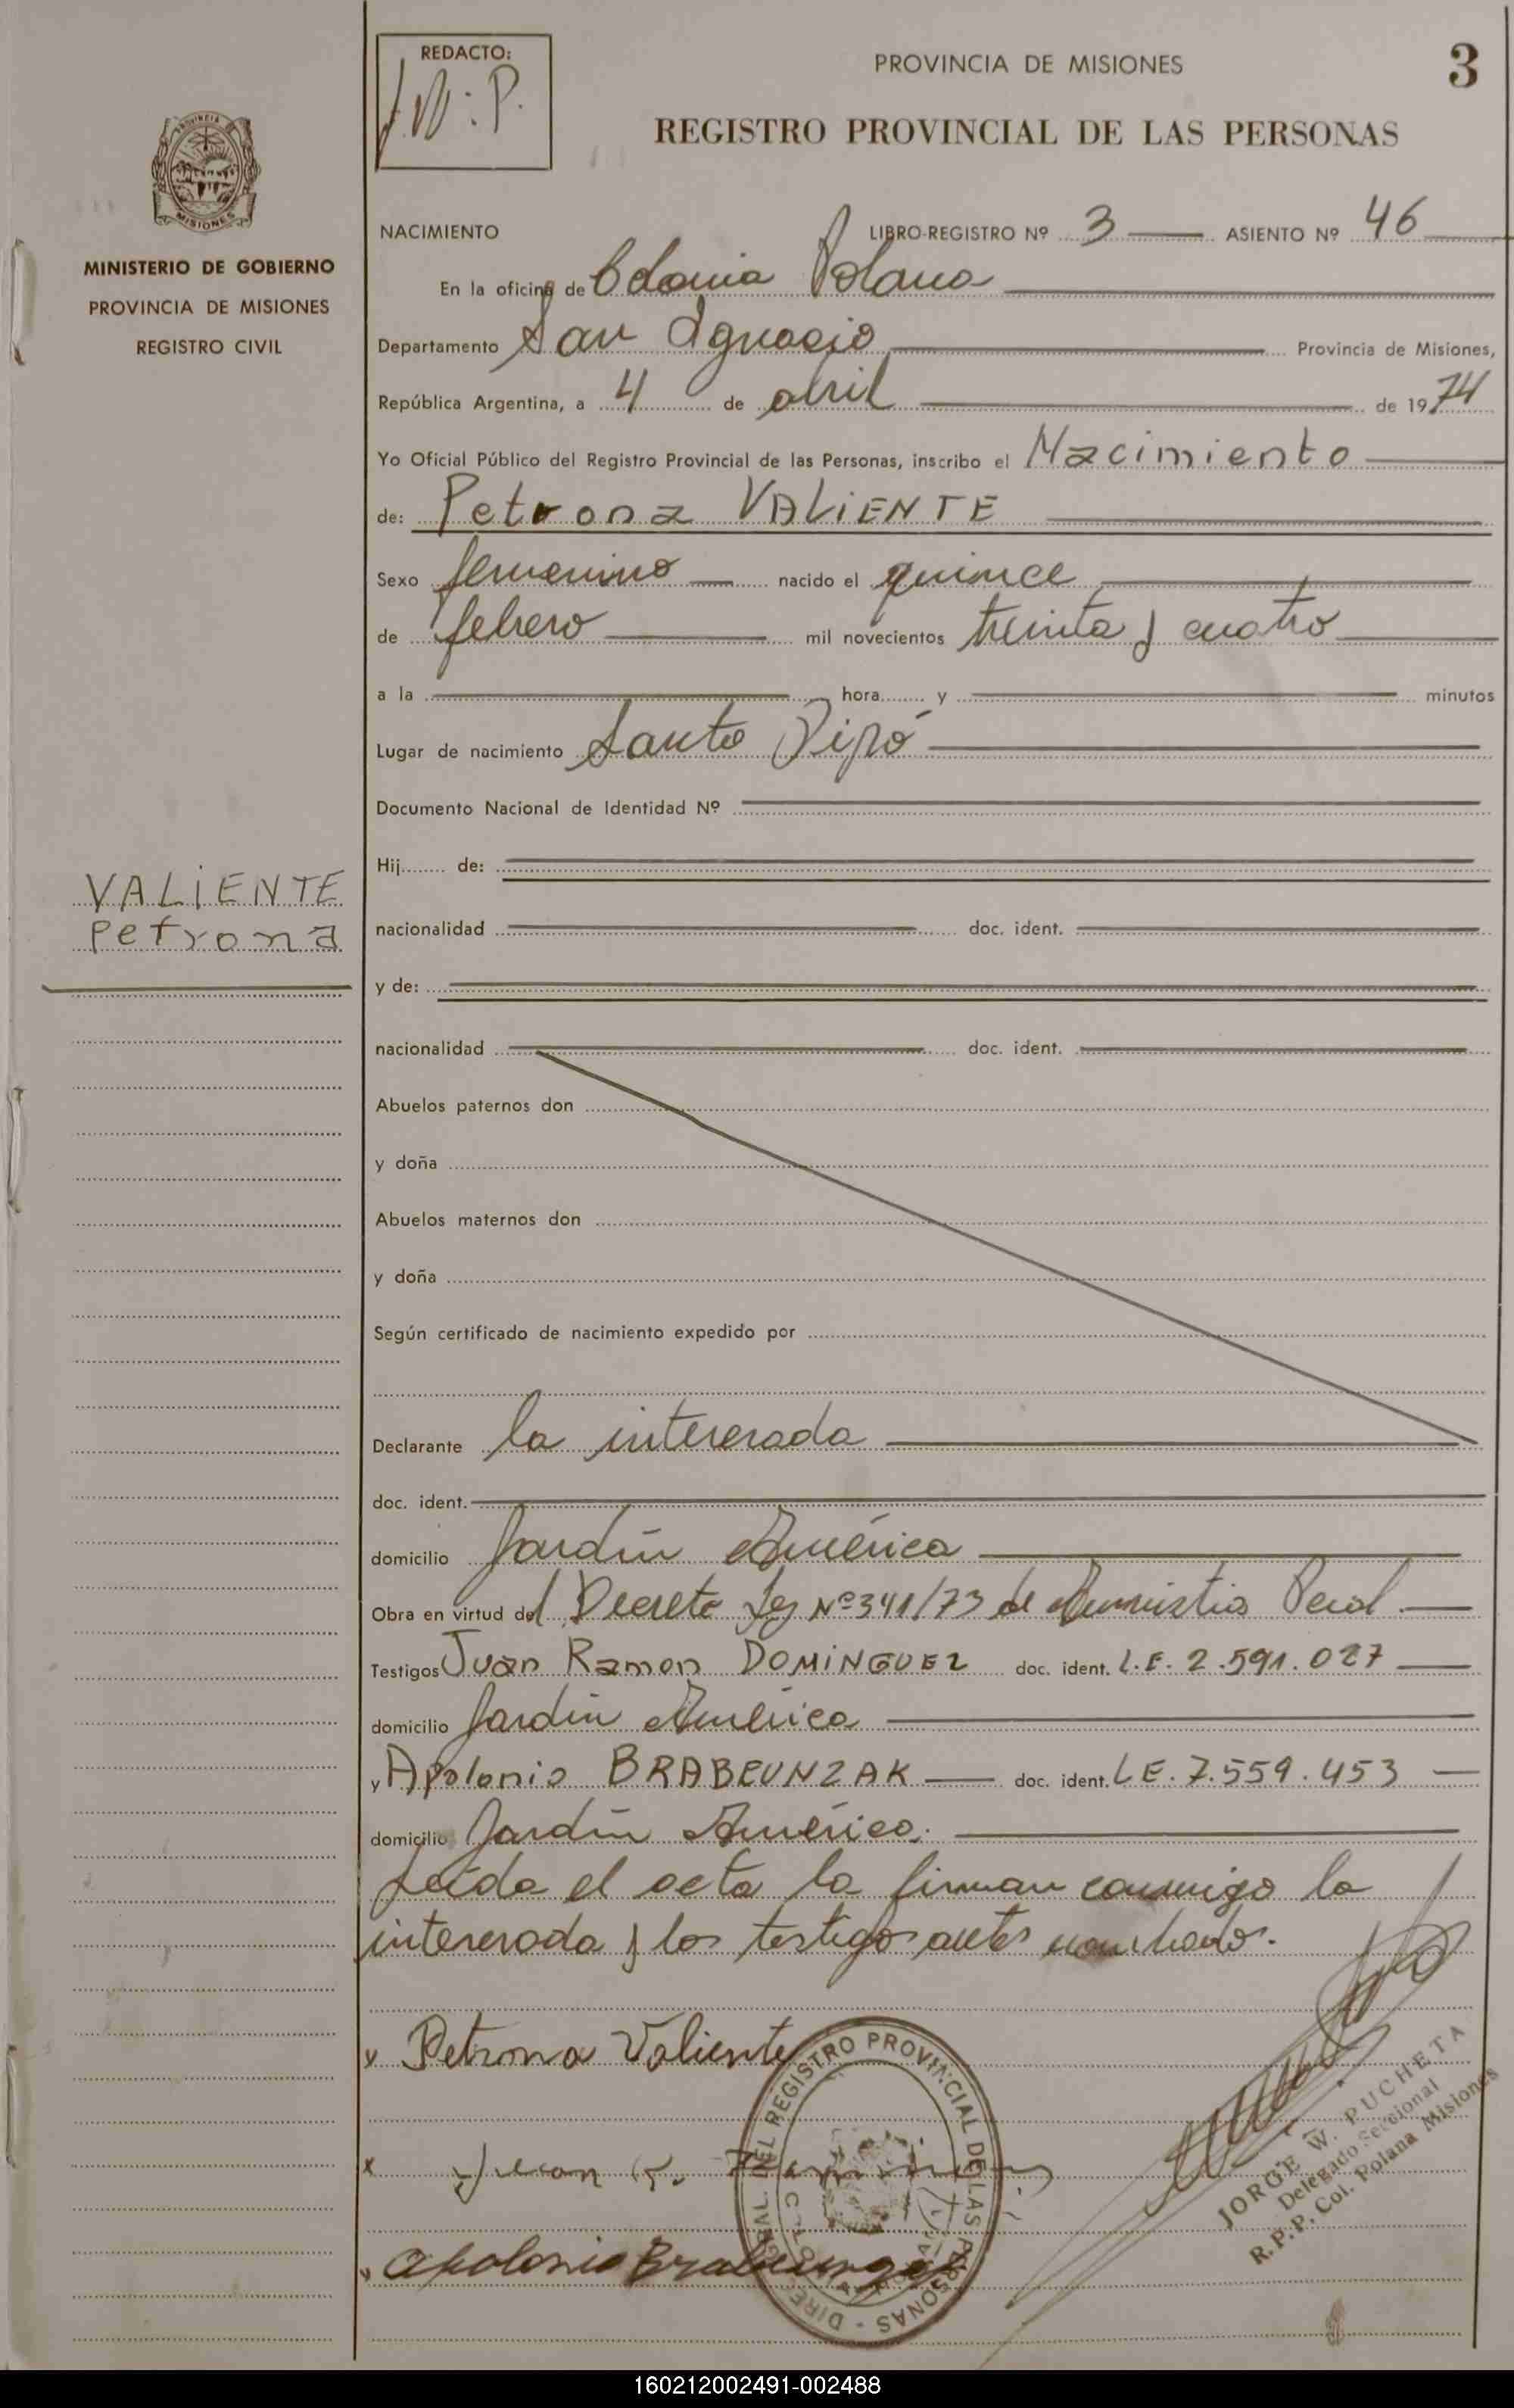 REDACTO:
J.W.P.
PROVINCIA DE MISIONES
3
REGISTRO PROVINCIAL DE LAS PERSONAS
MISIONES
MINISTERIO DE GOBIERNO
PROVINCIA DE MISIONES
REGISTRO CIVIL
NACIMIENTO LIBRO-REGISTRO Nº 3 ASIENTO Nº 46
En la oficina de Colonia Polana
Departamento San Ignacio Provincia de Misiones,
República Argentina, a 4 de abril de 1974
Yo Oficial Público del Registro Provincial de las Personas, inscribo el Nacimiento
de: Petrona VALIENTE
Sexo femenino nacido el quince
de febrero mil novecientos treinta y cuatro
a la hora y minutos
Lugar de nacimiento Santo Pipó
Documento Nacional de Identidad Nº
Hij de:
VALIENTE
Petrona
nacionalidad doc. ident.
y de:
nacionalidad doc. ident.
Abuelos paternos don
y doña
Abuelos maternos don
y doña
Según certificado de nacimiento expedido por
Declarante la interesada
doc. ident.
domicilio Jardín América
Obra en virtud del Decreto Ley Nº 341/73 de Amnistia
Testigos Juan Ramon DOMINGUEZ doc. ident. L.E. 2.591.027
domicilio Jardín América
y Apolonio BRABEUNZAK doc. ident. L.E. 7.559.453
domicilio Jardín América.
Leída el acta la firman conmigo la
interesada y los testigos antes nombrado.
x Petrona Valiente
x Juan R.
x Apolonio
DIRE GRAL. DEL REGISTRO PROVINCIAL DE LAS PERSONAS
JORGE W. PUCHETA
Delegado Seccional
R.P.P. Col. Polana Misiones
160212002491-002488